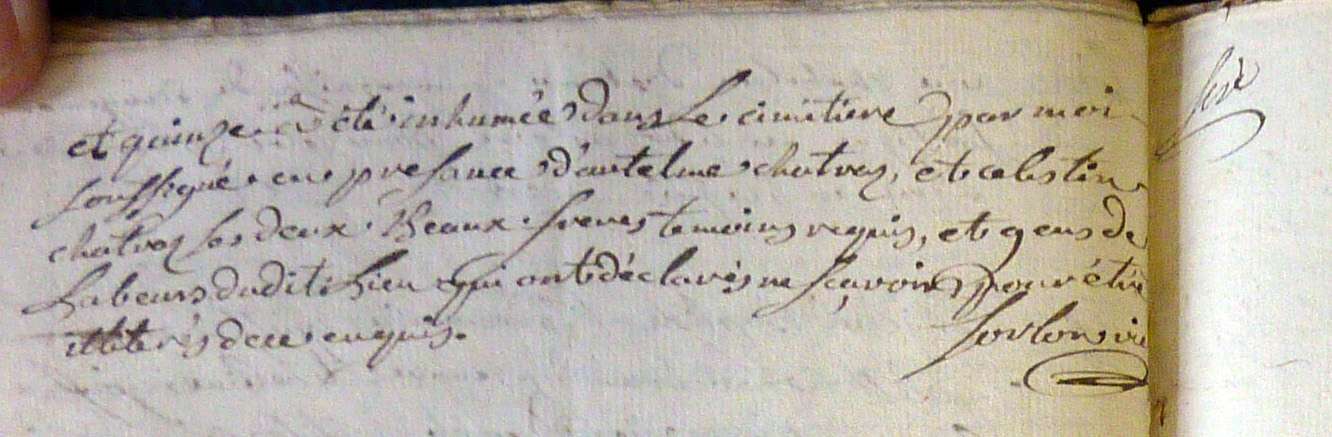 et quinze a été inhumée dans le cimitiere par moi
soussigné en presance d'antelme chatron, et celestin
chatron ses deux Beaux freres temoins requis, et gens de
Labeurs dudit Lieu qui ont déclarés ne sçavoir pour être
illiterés de ce enquis.